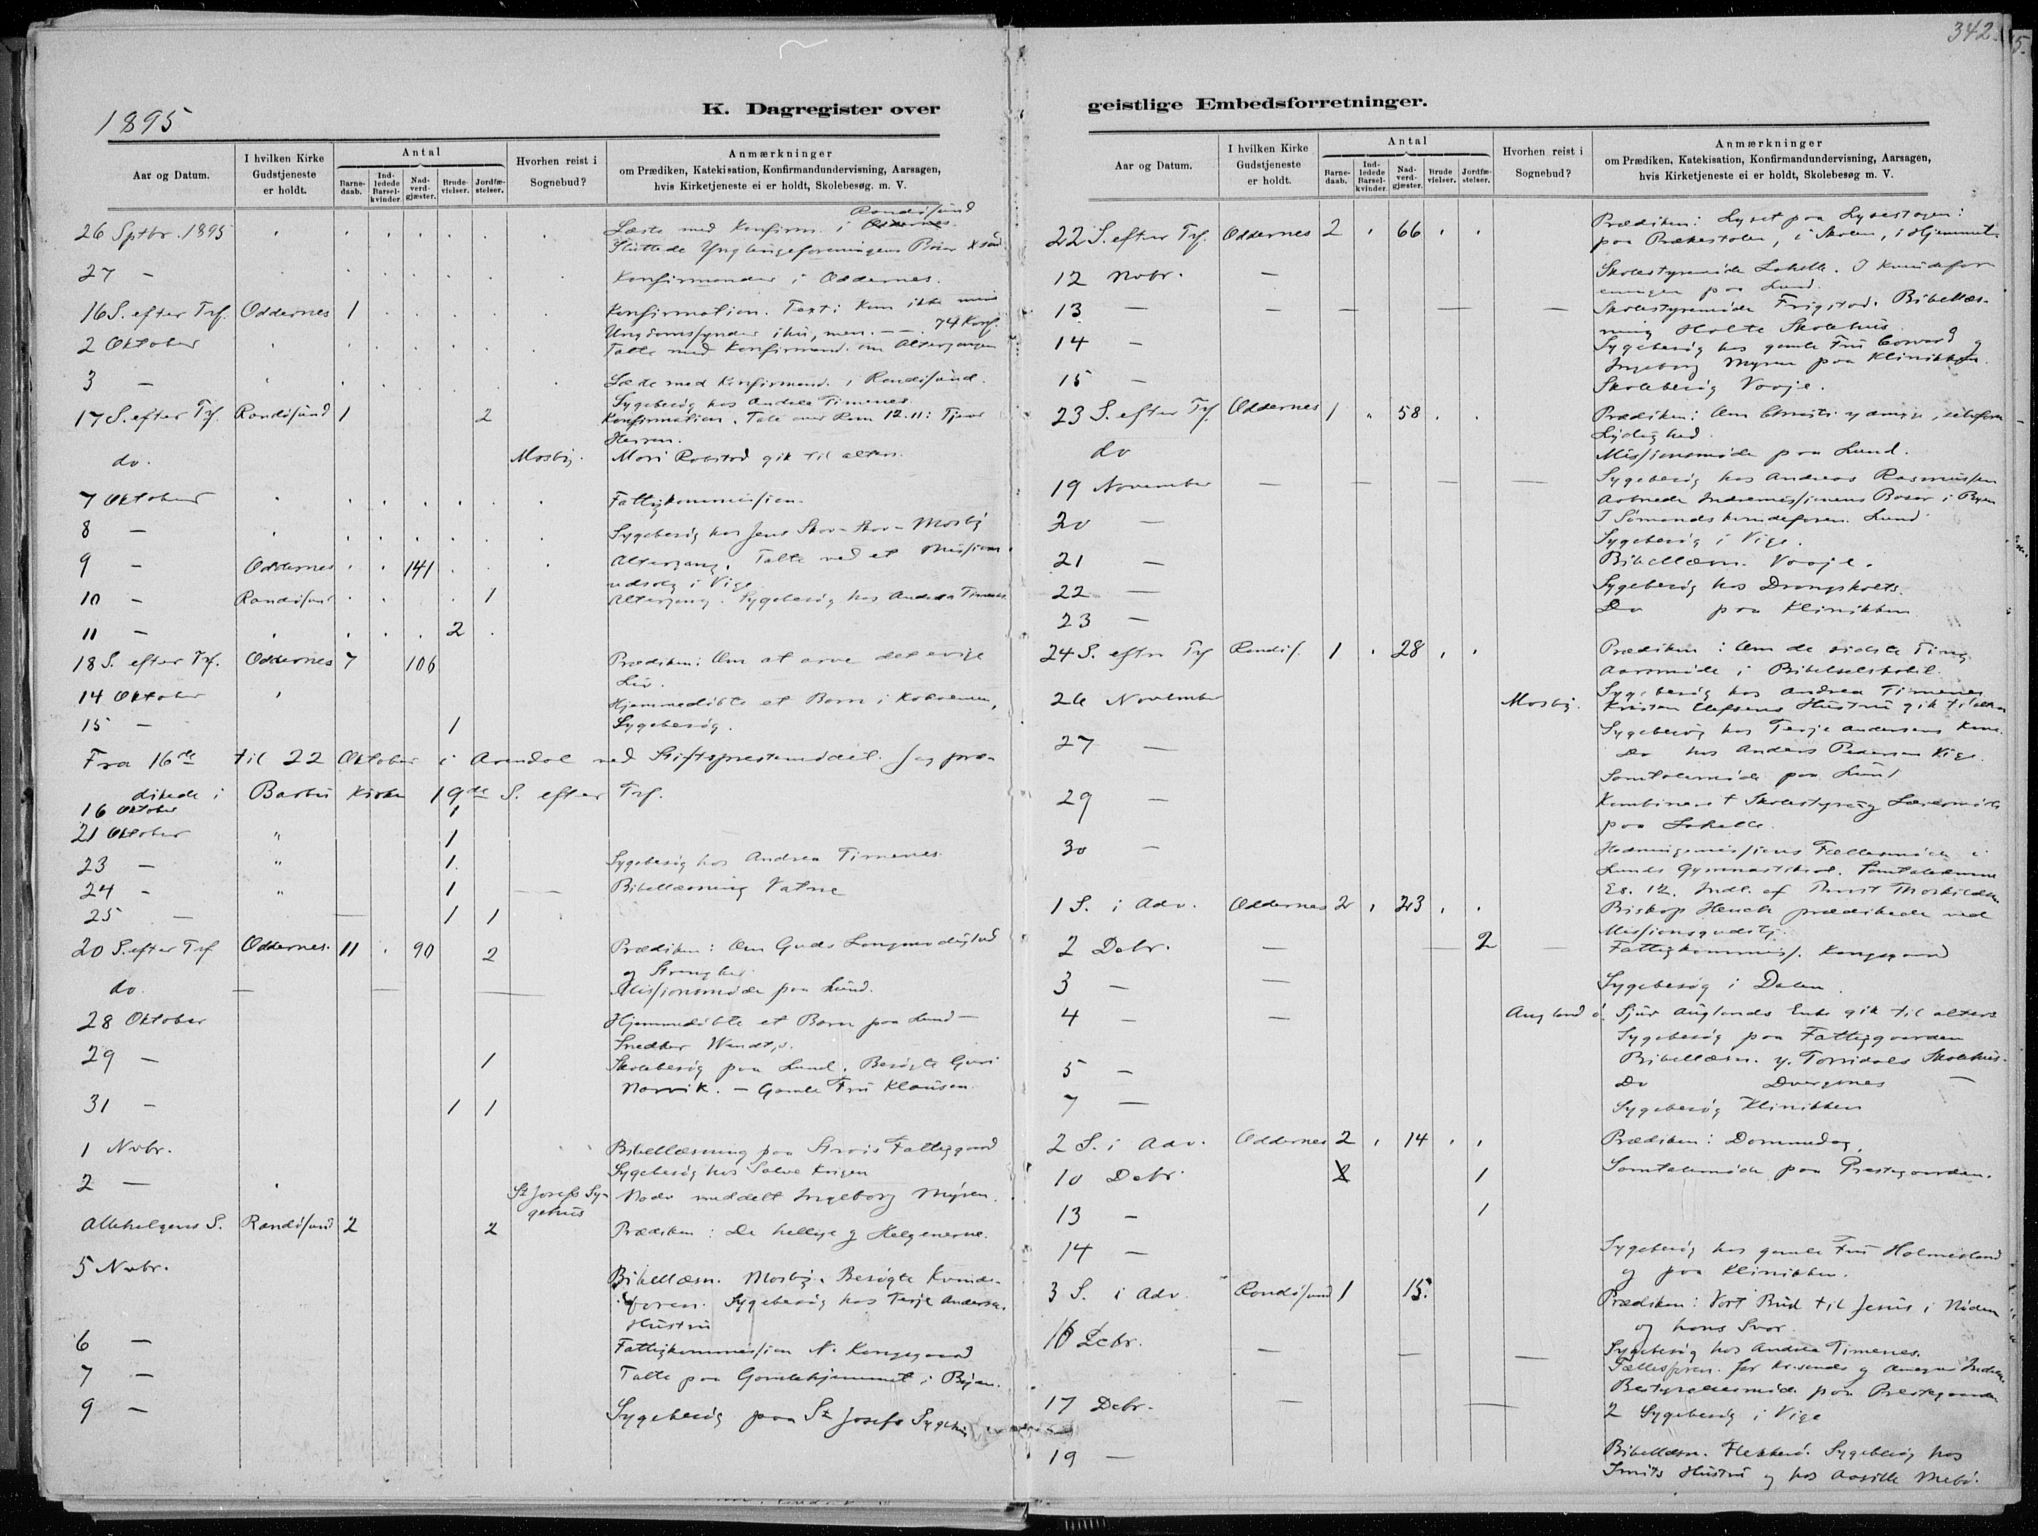 342.
5.
1895
K. Dagregister over
Aar og Datum.
I hvilken Kirke Gudstjeneste er holdt.
Antal
Barnedaab.
Indledede Barselkvinder.
Nadverdgjæster.
Brudevielser.
Jordfæstelser.
Hvorhen reist i Sognebud?
Anmærkninger
om Prædiken, Katekisation, Konfirmandundervisning, Aarsagen,
hvis Kirketjeneste ei er holdt, Skolebesøg. m. V.
Randøsund
26 Sptbr. 1895 Læste med Konfirm. i Oddernes.
Sluttede Ynglingeforeningens
27 - Konfirmander i Oddernes.
16 S. efter Trf. Oddernes 1 Konfirmation. Text: Kom ikke mine
Ungdomssynder ihu, men. — 74 Konf.
2 Oktober Talte med Konfirmand. om Altergangen
3 - Læste med Konfirmand. i Randøsund.
Sygebesøg hos Andrea Timenes.
17 S. efter Trf. Randøsund 1 2 Konfirmation. Tale over Rom 12.11: Tjener
Herren.
do. Mosby. Mari Robstad gik til alters.
7 Oktober Fattigkommission.
8 - Sygebesøg hos Jens Mosby
9 - Oddernes 141 Altergang. Talte ved et Missions
udsalg i Vige
10 - Randøsund 1 Altergang. Sygebesøg hos Andrea Timenes
11 - 2
18 S. efter Trf. Oddernes 7 106 Prædiken: Om at arve det evige
Liv.
14 Oktober Hjemmedøbte et Barn i
15 - 1 Sygebesøg.
Fra 16de til 22 Oktober i Arendal ved Stiftsprestemødet. Jeg præ-
dikede i Barbu Kirke 19de S. efter Trf.
16 Oktober 1
21 Oktober " 1
23 - " 1. Sygebesøg hos Andrea Timenes.
24 - " 1 Bibellæsning Vatne
25 - 1 1
20 S. efter Trf. Oddernes. 11 90 2 Prædiken: Om Guds Langmodighed
og Strenghed.
do. Missionsmøde paa Lund.
28 Oktober Hjemmedøbte et Barn paa Lund —
Snedker Wendt,s.
29 - 1 Skolebesøg paa Lund. Besøgte Guri
Narvik. — Gamle Fru Klausen.
31 - 1 1
1 Nvbr. Bibellæsning paa Strøis Fattiggaard
Sygebesøg hos Salve
2 — St Josefs Sygehus Nadv. meddelt Ingeborg Myren.
Allehelgens S. Randøsund 2 2 Prædiken: De hellige og Helgenerne.
5 Nvbr. Bibellæsn. Mosby. Besøgte Kvinde-
foren. Sygebesøg hos Terje Andersens
Hustru
6 — Fattigkommission N. Kongsgaard
7 — Talte paa Gamlehjemmet i Byen.
9 — Sygebesøg paa St Josefs Sygehus
geistlige Embedsforretninger.
Aar og Datum.
I hvilken Kirke Gudstjeneste er holdt.
Antal
Barnedaab.
Indledede Barselkvinder.
Nadverdgjæster.
Brude vielser.
Jordfæstelser.
Hvorhen reist i Sognebud?
Anmærkninger
om Prædiken, Katekisation, Konfirmandundervisning, Aarsagen,
hvis Kirketjeneste ei er holdt, Skolebesøg m. V.
22 S. efter Trf. Oddernes 2 66 Prædiken: Lyset paa Lysestagen:
paa Prækestolen, i Skolen, i Hjemmet.
12 Nvbr. — Skolestyremøde I Kvindefor
eningen paa Lund.
13 — Skolestyremøde Frigstad. Bibellæs-
ning Holte Skolehus
14 — Sygebesøg hos gamle Fru og
Ingeborg Myren paa Klinikken.
15 — Skolebesøg Vraje.
23 S. efter Trf. Oddernes 1 " 58 Prædiken: Om Christi
Lydighed.
do Missionsmøde paa Lund.
19 November Sygebesøg hos Andreas Rasmussen
Aabnede Indremissionens Basar i Byen
20 — I Sømandskvindeforen. Lund
Sygebesøg i Vige.
21 — Bibellæsn. Vraje.
22 — Sygebesøg hos
23 — Do paa Klinikken
24 S. efter Trf Randøs. 1 28 Prædiken: Om de sidste Ting
Aarsmøde i Bibelselskabet.
26 November Mosby. Sygebesøg hos Andrea Timenes
Kristen Olefsens Hustru gik til alters
27 — Sygebesøg hos Terje Andersens Kone
Do hos Anders Pedersen Vige.
Samtalemøde paa Lund
29 — Kombineret Skolestyre og Læremøde
paa
30 — Hedningemissionens Fællesmøde i
Lunds Gymnastiklok. Samtaleemne
Es. 12. Indl. af
1 S. i Adv. Oddernes 2 23 Biskop Heuch prædikede ved
Missionsgudstj.
2 Debr. 2 Fattigkommiss. Kongsgaard
3 — Sygebesøg i Dalen
4 — Augland ø. Sjur Auglands Enke gik til alters
Sygebesøg paa Fattiggaarden
5 — Bibellæsn. y. Torridals Skolehus.
Do Dvergsnes —
7 — Sygebesøg Klinikken
2 S. i Adv. Oddernes 2 14 Prædiken: Dommedag
10 Debr. 2 1 Samtalemøde paa Prestegaarden.
13 - 1
14 — Sygebesøg hos gamle Fru Holmesland
og paa Klinikken.
3 S. i Adv. Randøsund 1 15. Prædiken: Vort Bud til Jesus i Nøden
og hans Svar.
16 Debr. Sygebesøg hos Andrea Timenes.
Bestyrelsesmøde paa Prestegaarden
17 Debr. 2 Sygebesøg i Vige
19 — Bibellæsn. Flekkerø. Sygebesøg hos
Smits Hustru og hos Aasille Mebø.